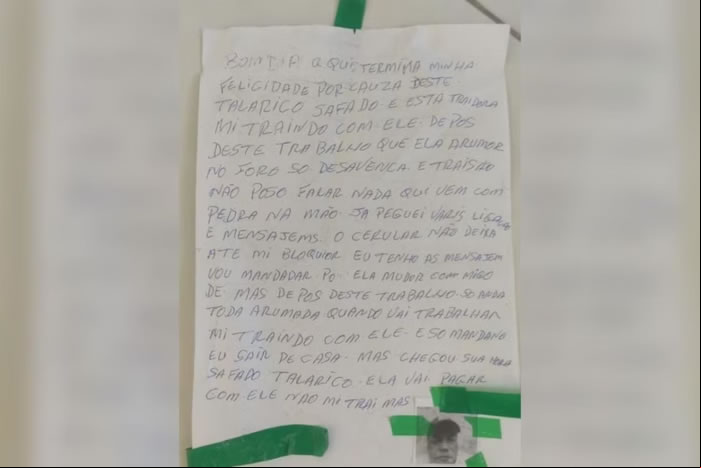 BOM DIA A QUI TERMIMA MINHA
FELICIDADE POR CAUZA DESTE
TALARICO SAFADO E ESTA TRAIDORA
MI TRAINDO COM ELE. DEPOS
DESTE TRABALHO QUE ELA ARUMOR
NO FORO SO DESAVENCA. E TRAISÃO
NÃO POSO FALAR NADA QUI VEM COM
PEDRA NA MÃO. JA PEGUEI VARIS
E MENSAJEMS. O CERULAR NÃO DEIXA
ATE MI BLOQUIOR EU TENHO AS MENSAJEM
VOU MANDADAR. PO. ELA MUDOR COM MIGO
DE MAS DEPOS DESTE TRABALHO. SO ANDA
TODA ARUMADA QUANDO VAI TRABALHAR
MI TRAINDO COM ELE. E SO MANDANO
EU SAIR DE CASA. MAS CHEGOU SUA HORA
SAFADO TALARICO. ELA VAI PAGAR
COM ELE NÃO MI TRAI MAS